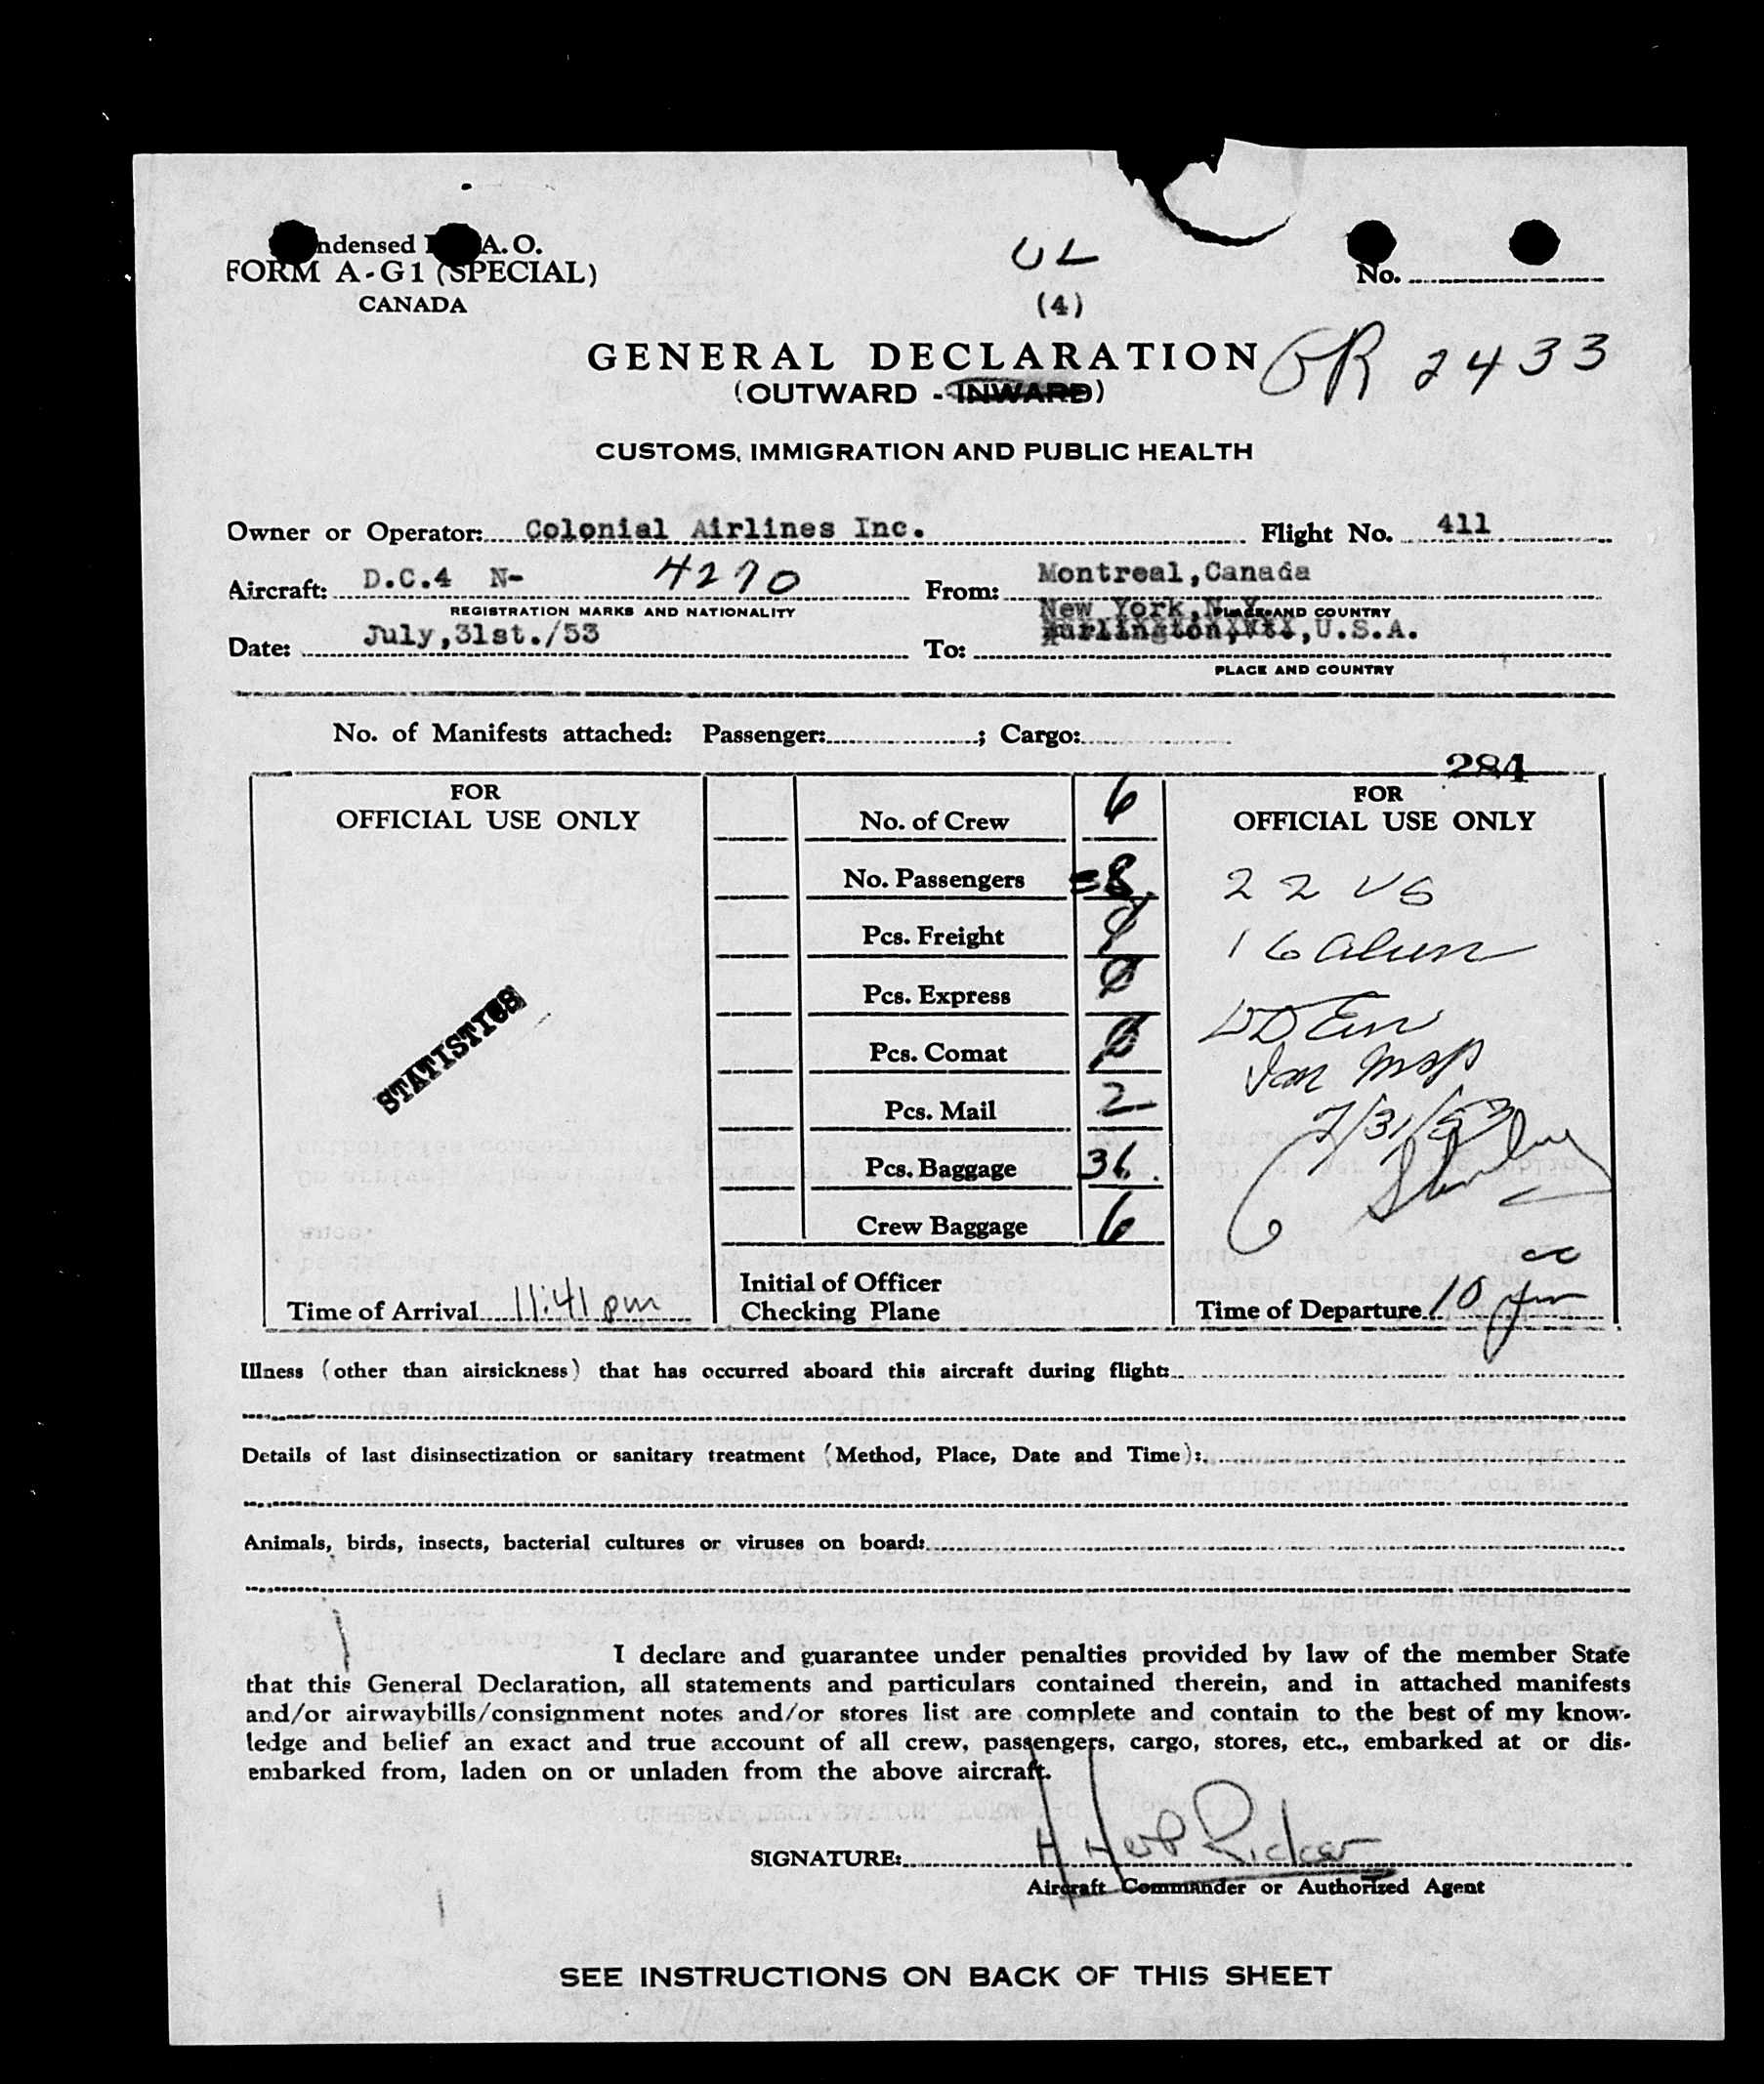 ndensed A. O.
FORM A-G1 (SPECIAL)
CANADA
UL
(4)
No.
GENERAL DECLARATION
2433
(OUTWARD - INWARD)
CUSTOMS, IMMIGRATION AND PUBLIC HEALTH
Owner or Operator: Colonial Airlines Inc. Flight No. 411
Aircraft: D.C.4 N- 4270 From: Montreal,Canada
REGISTRATION MARKS AND NATIONALITY PLACE AND COUNTRY
New York,N.Y.
Date: July,31st./53 To: Burlington,Vt.,U.S.A.
PLACE AND COUNTRY
No. of Manifests attached: Passenger: ; Cargo:
284
FOR
OFFICIAL USE ONLY
No. of Crew 6
No. Passengers =8
Pcs. Freight
Pcs. Express 0
Pcs. Comat 0
Pcs. Mail 2
Pcs. Baggage 36
Crew Baggage 6
Initial of Officer
Checking Plane
STATISTICS
Time of Arrival 11:41 pm
FOR
OFFICIAL USE ONLY
22 US
16 alien
7/31/53
Time of Departure 10 pm
Illness (other than airsickness) that has occurred aboard this aircraft during flight:
Details of last disinsectization or sanitary treatment (Method, Place, Date and Time):
Animals, birds, insects, bacterial cultures or viruses on board:
I declare and guarantee under penalties provided by law of the member State
that this General Declaration, all statements and particulars contained therein, and in attached manifests
and/or airwaybills/consignment notes and/or stores list are complete and contain to the best of my know-
ledge and belief an exact and true account of all crew, passengers, cargo, stores, etc., embarked at or dis-
embarked from, laden on or unladen from the above aircraft.
SIGNATURE:
Aircraft Commander or Authorized Agent
SEE INSTRUCTIONS ON BACK OF THIS SHEET